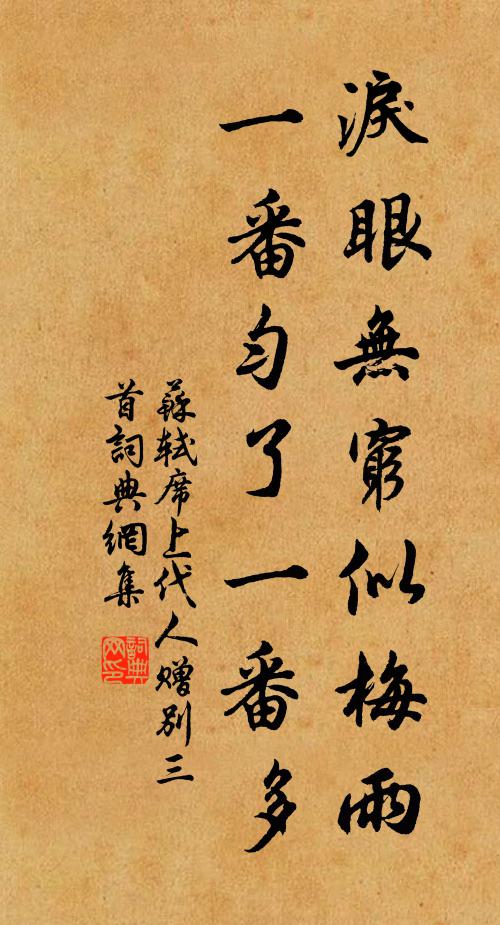 淚眼無窮似梅雨
一番勻了一番多
蘇軾席上代人贈別三
首詞典網集
詞典
网印